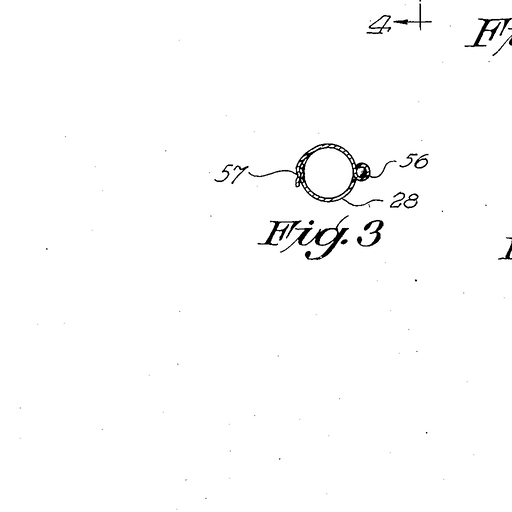 4
57
56
28
Fig. 3